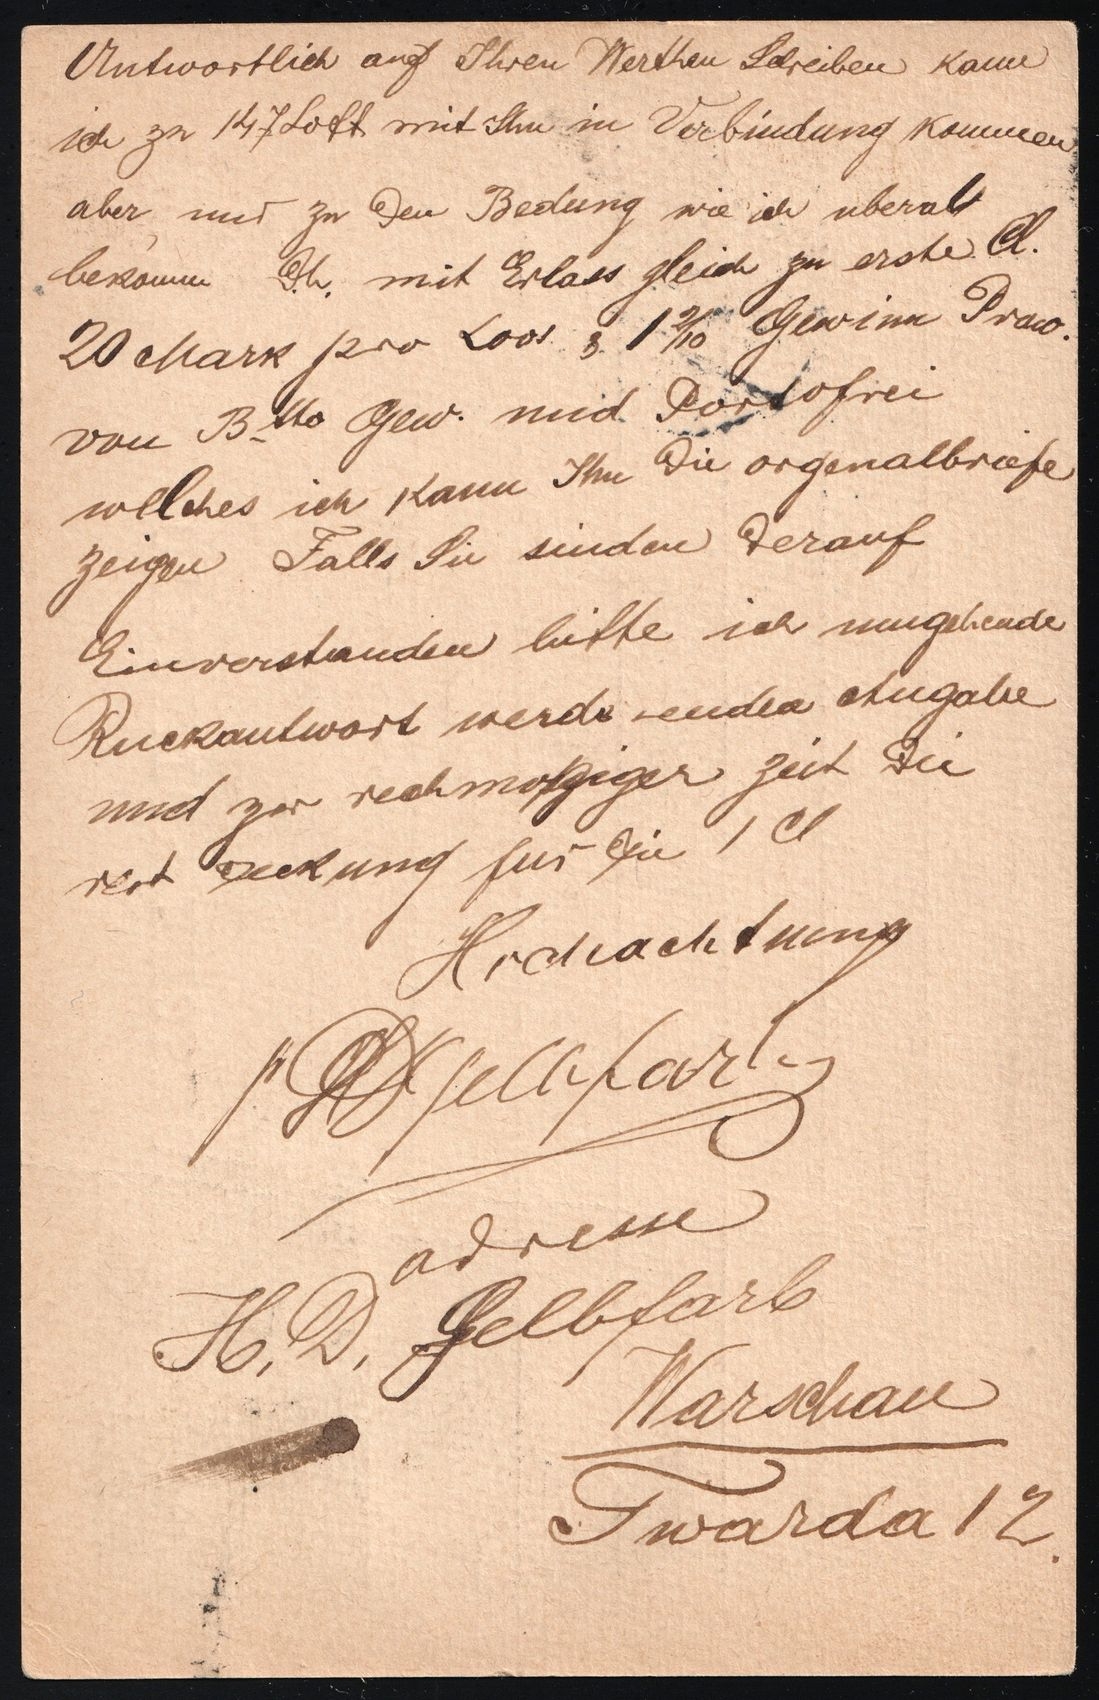 Antwortlich auf Ihren Werthen Schreiben kann
ich zu 147 Lott mit Ihn in Verbindung kommen
aber nur zu den Bedung wie ich uberall
bekomm D.h. mit Erlass gleich zu erste Cl.
20 Mark pro Loos & 1 2/10 Gewinn Prov.
von Btto Gew. und Portofrei
welches ich kann Ihn die orgenalbriefe
zeigen Falls Sie sinden derauf
Einverstanden bitte ich umgehende
Ruckantwort werde senden Angabe
und zur rechmoßziger zeit die
rest deckung fur die 1 Cl
Hochachtung
HD Gelbfarb
adresse
H. D. Gelbfarb
Warschau
Twarda 12.